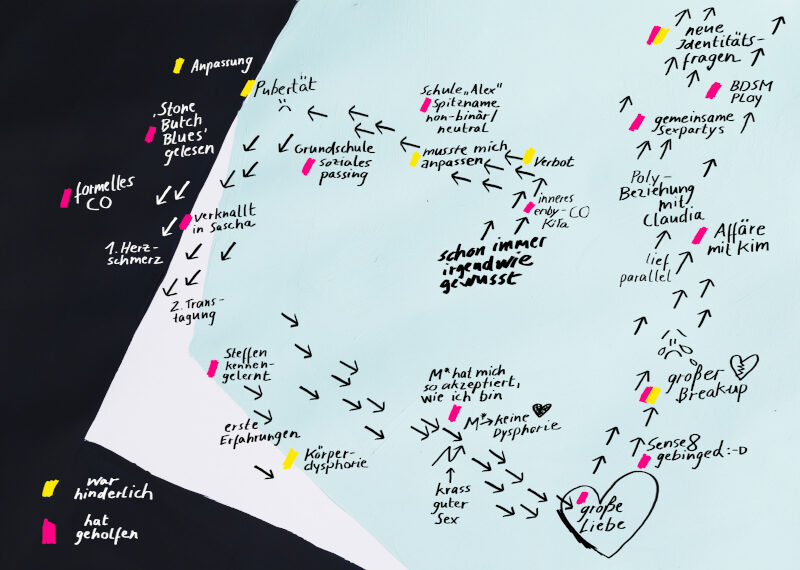 Anpassung
Pubertät
'Stone
Butch
Blues'
gelesen
formelles
CO
verknallt
in Sascha
1. Herz-
schmerz
2. Trans-
tagung
Grundschule
soziales
passing
Schule „Alex"
Spitzname
non-binär/
neutral
musste mich
anpassen
Verbot
inneres
enby-CO
KiTa
schon immer
irgendwie
gewusst
Steffen
kennen-
gelernt
erste
Erfahrungen
Körper-
dysphorie
M* hat mich
so akzeptiert,
wie ich bin
M*→keine
Dysphorie
krass
guter
Sex
große
Liebe
Sense8
gebinged :-D
großer
Break-up
lief
parallel
Affäre
mit Kim
Poly-
Beziehung
mit
Claudia
gemeinsame
Sexpartys
BDSM
Play
neue
Identitäts-
fragen
war
hinderlich
hat
geholfen